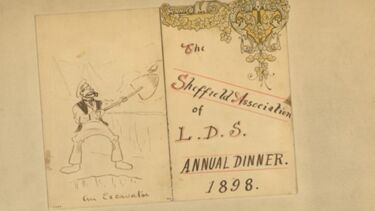 An Excavator
The
Sheffield Association
of
L. D. S.
ANNUAL DINNER.
1898.